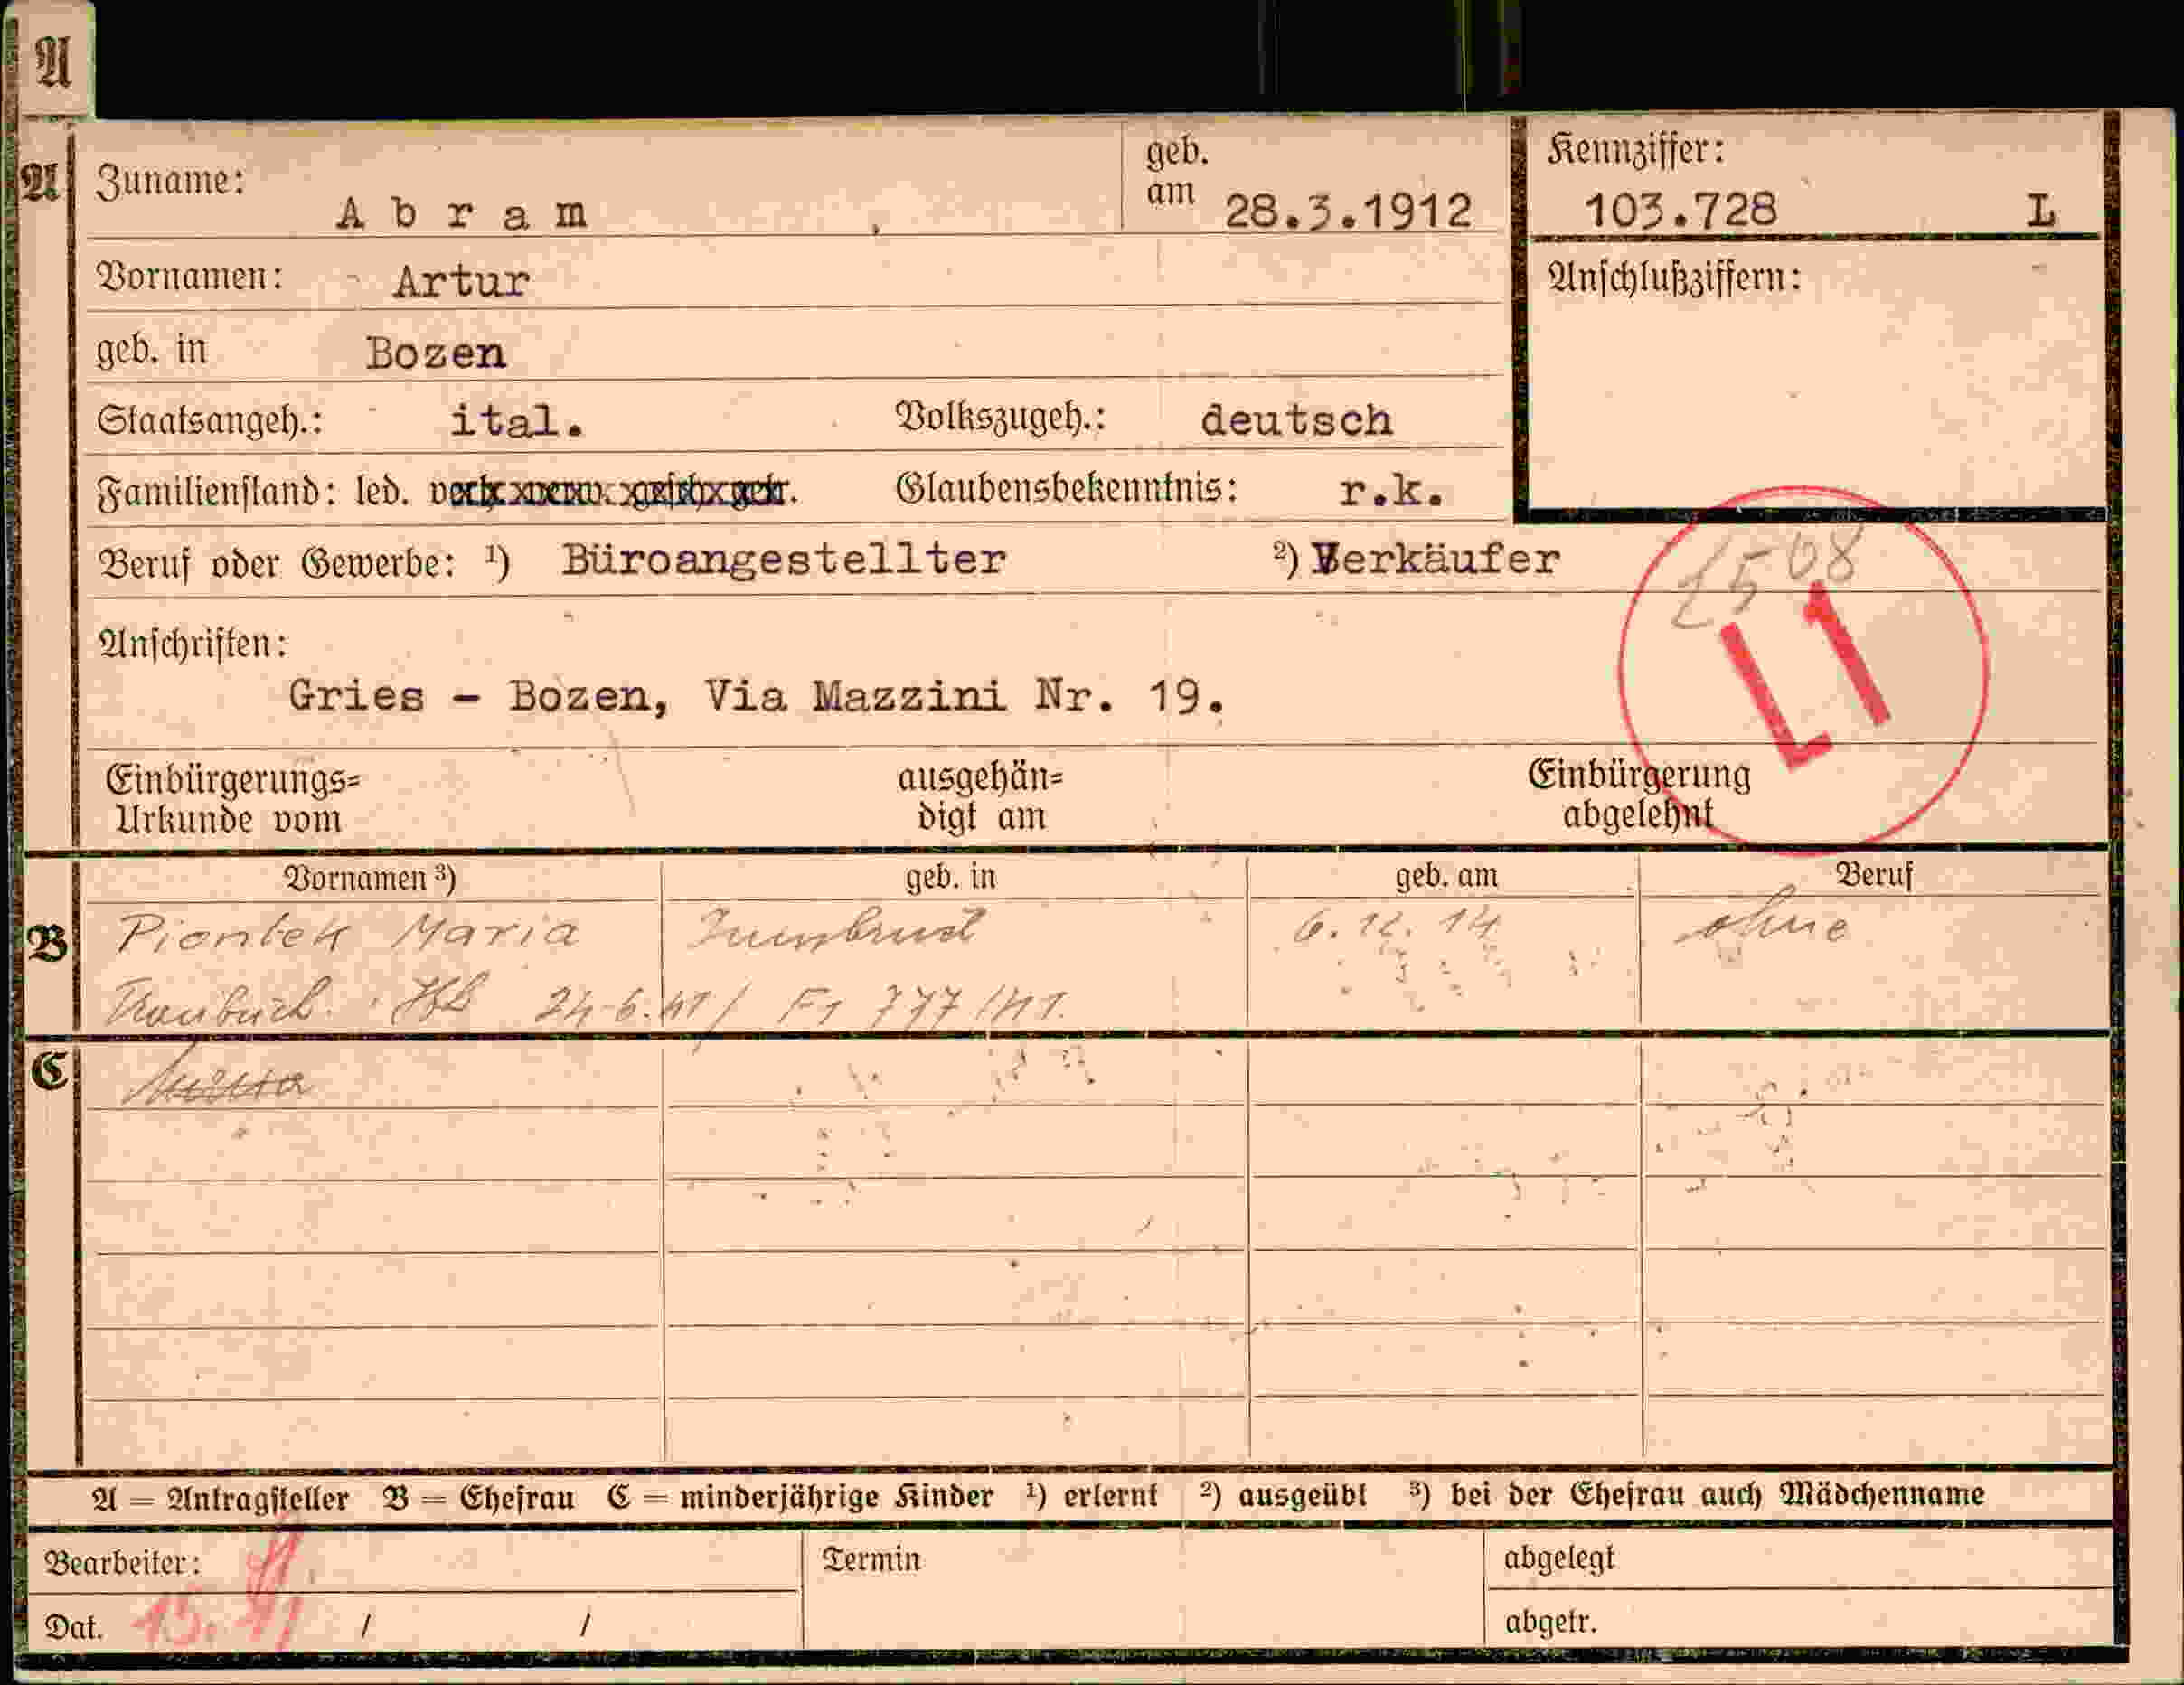 A
A
Zuname: Abram geb. am 28.3.1912
Kennziffer: 103.728 L
Vornamen: Artur
Anschlußziffern:
geb. in Bozen
Staatsangeh.: ital. Volkszugeh.: deutsch
Familienstand: led. verh. verw. gesch. getr. Glaubensbekenntnis: r.k.
Beruf oder Gewerbe: ¹) Büroangestellter ²) Verkäufer
L1
Anschriften:
Gries - Bozen, Via Mazzini Nr. 19.
Einbürgerungs=
Urkunde vom
ausgehän=
digt am
Einbürgerung
abgelehnt
Vornamen ³) geb. in geb. am Beruf
B Piontek Maria Innsbruck 6.12.14 ohne
24.6.41 / F1 777/41.
C
A = Antragsteller B = Ehefrau C = minderjährige Kinder ¹) erlernt ²) ausgeübt ³) bei der Ehefrau auch Mädchenname
Bearbeiter: Termin abgelegt
Dat. / / abgetr.